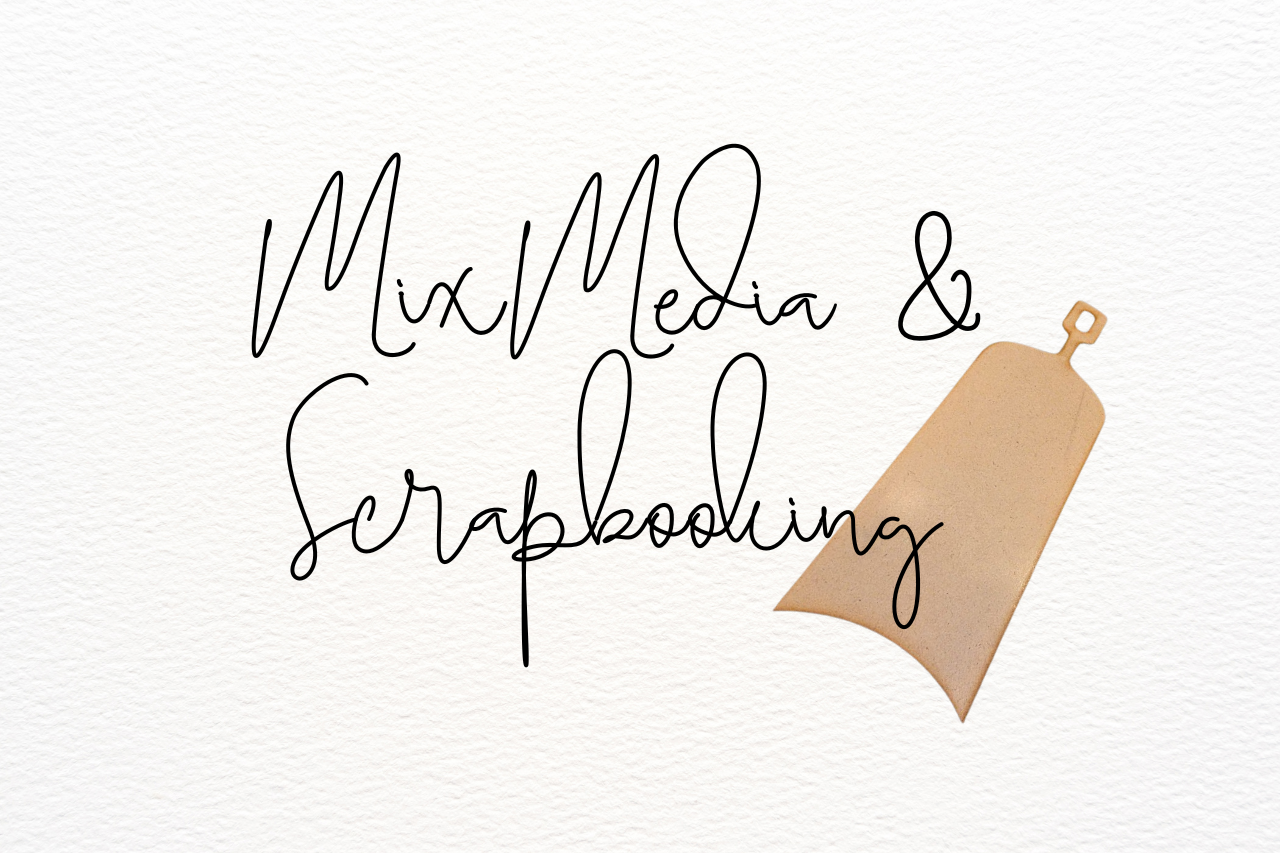 MixMedia &
Scrapbooking